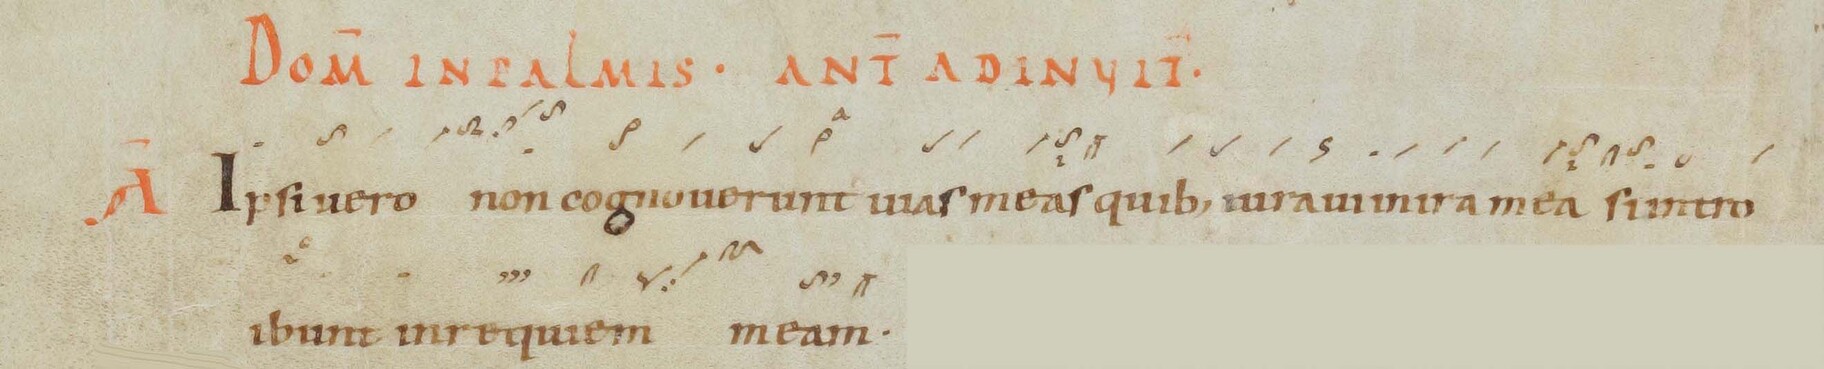 Dom̄ IN PSALMIS · ANT̄ AD INVIT̄·
Ā Ipsi uero non cognouerunt uias meas quib; iuraui in ira mea si intro
ibunt in requiem meam·